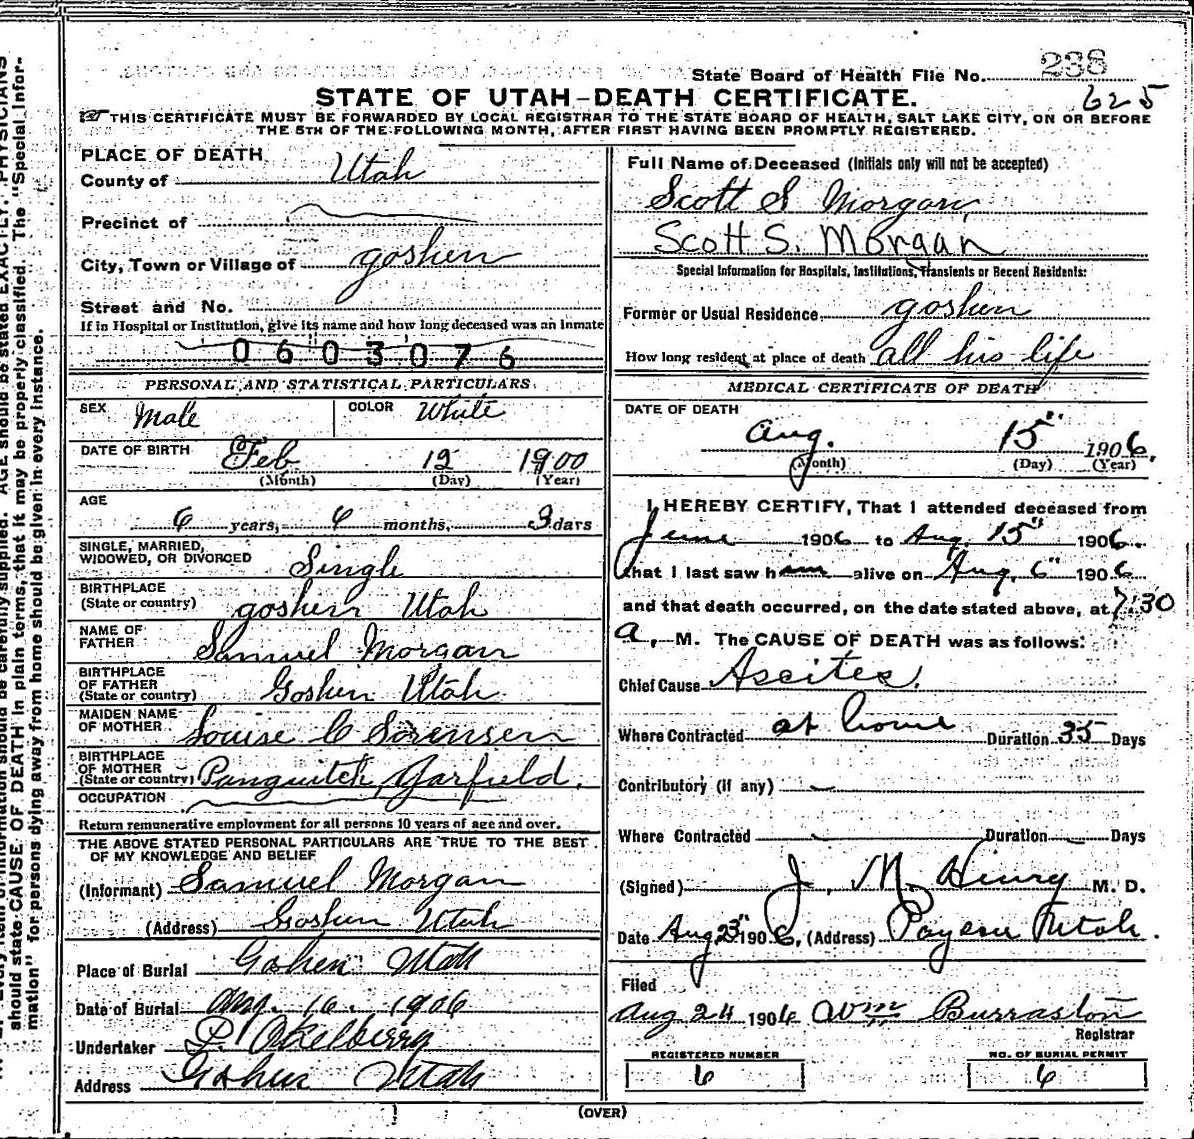 State Board of Health File No. 238
STATE OF UTAH—DEATH CERTIFICATE. 625
THIS CERTIFICATE MUST BE FORWARDED BY LOCAL REGISTRAR TO THE STATE BOARD OF HEALTH, SALT LAKE CITY, ON OR BEFORE
THE 5TH OF THE FOLLOWING MONTH, AFTER FIRST HAVING BEEN PROMPTLY REGISTERED.
PLACE OF DEATH
County of Utah
Precinct of
City, Town or Village of goshen
Street and No.
If in Hospital or Institution, give its name and how long deceased was an inmate
0603076
PERSONAL AND STATISTICAL PARTICULARS.
SEX Male COLOR White
DATE OF BIRTH Feb 12 1900
(Month) (Day) (Year)
AGE
6 years, 6 months, 3 days
SINGLE, MARRIED,
WIDOWED, OR DIVORCED Single
BIRTHPLACE
(State or country) goshen Utah
NAME OF
FATHER Samuel Morgan
BIRTHPLACE
OF FATHER
(State or country) Goshen Utah
MAIDEN NAME
OF MOTHER Louise C Sorensen
BIRTHPLACE
OF MOTHER
(State or country) Panguitch, Garfield.
OCCUPATION
Return remunerative employment for all persons 10 years of age and over.
THE ABOVE STATED PERSONAL PARTICULARS ARE TRUE TO THE BEST
OF MY KNOWLEDGE AND BELIEF
(Informant) Samuel Morgan
(Address) Goshen Utah
Place of Burial Gohen Utah
Date of Burial Aug. 16. 1906
Undertaker P. Okelberry
Address Gohen Utah
Full Name of Deceased (Initials only will not be accepted)
Scott S Morgan
Scott S. Morgan
Special Information for Hospitals, Institutions, Transients or Recent Residents:
Former or Usual Residence goshen
How long resident at place of death all his life
MEDICAL CERTIFICATE OF DEATH
DATE OF DEATH
Aug. 15" 1906.
(Month) (Day) (Year)
I HEREBY CERTIFY, That I attended deceased from
June 1906 to Aug. 15" 1906
that I last saw him alive on Aug. 6" 1906
and that death occurred, on the date stated above, at 7:30
a, M. The CAUSE OF DEATH was as follows:
Chief Cause Ascites.
Where Contracted at home Duration 35 Days
Contributory (if any)
Where Contracted Duration Days
(Signed) J. M. Henry M. D.
Date Aug 23" 1906, (Address) Payson Utah.
Filed
Aug 24 1906 Wm Burraston
Registrar
REGISTERED NUMBER
6
NO. OF BURIAL PERMIT
6
(OVER)
should state CAUSE OF DEATH in plain terms, that it may be properly classified. The "Special Infor-
mation" for persons dying away from home should be given in every instance.